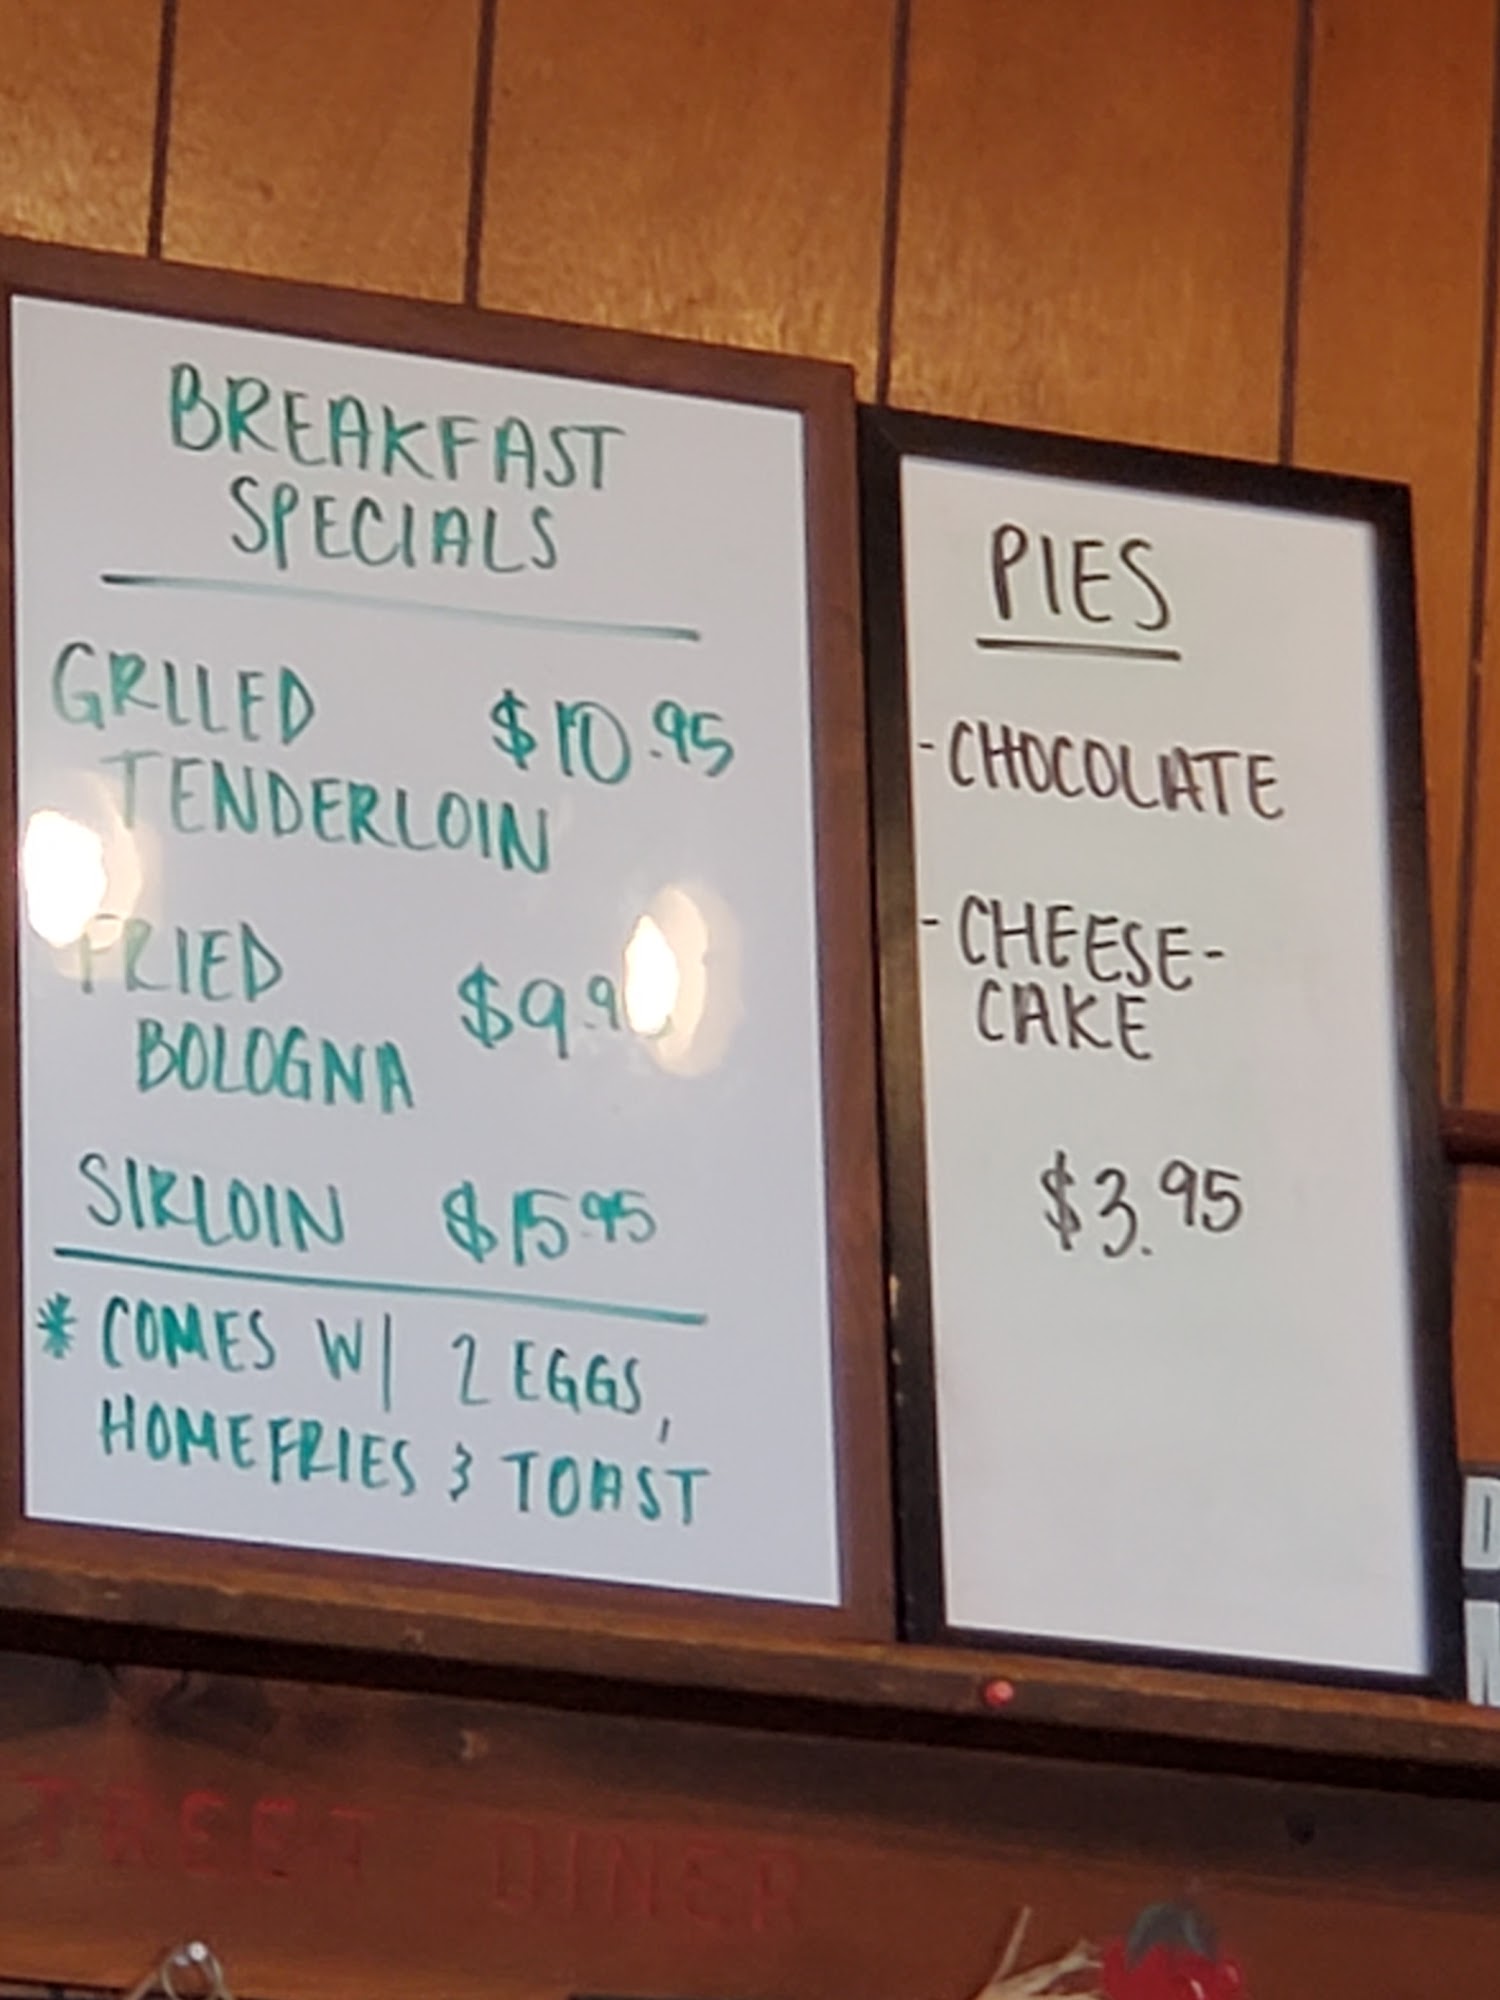 BREAKFAST
SPECIALS
GRLLED $10.95
TENDERLOIN
FRIED
$9.9
BOLOGNA
SIRLOIN $15.95
* COMES W/ 2 EGGS,
HOMEFRIES & TOAST
PIES
-CHOCOLATE
-CHEESE-
CAKE
$3.95
TREET DINER